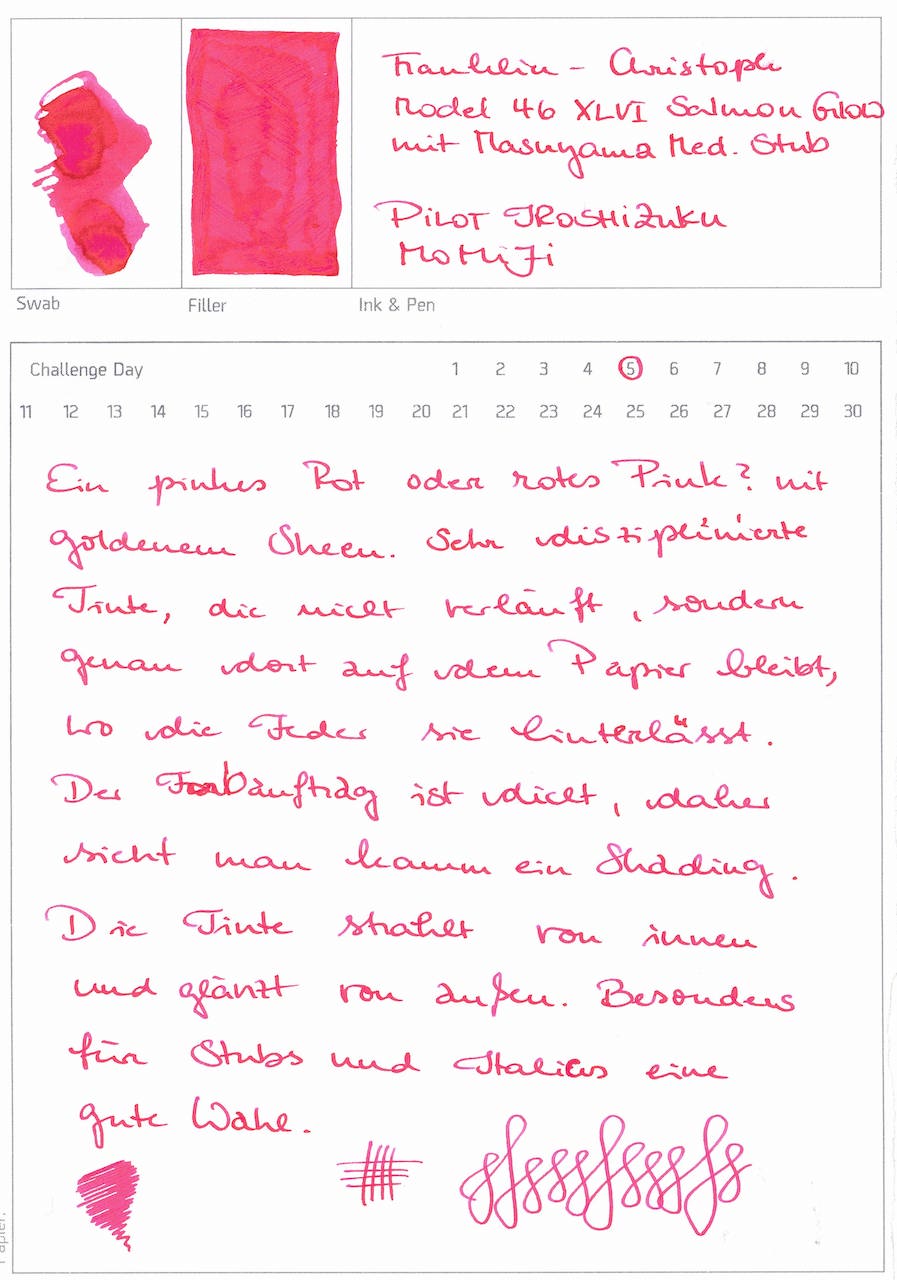 Franklin - Christoph
Model 46 XLVI Salmon Glow
mit Masuyama Med. Stub
PILOT IROSHIZUKU
MOMIJI
Swab
Filler
Ink & Pen
Challenge Day 1 2 3 4 5 6 7 8 9 10
11 12 13 14 15 16 17 18 19 20 21 22 23 24 25 26 27 28 29 30
Ein pinkes Rot oder rotes Pink? mit
goldenem Sheen. Sehr disziplinierte
Tinte, die nicht verläuft, sondern
genau dort auf dem Papier bleibt,
wo die Feder sie hinterlässt.
Der Farbauftrag ist dicht, daher
sieht man kaum ein Shading.
Die Tinte strahlt von innen
und glänzt von außen. Besonders
für Stubs und Italics eine
gute Wahl.
Papier: